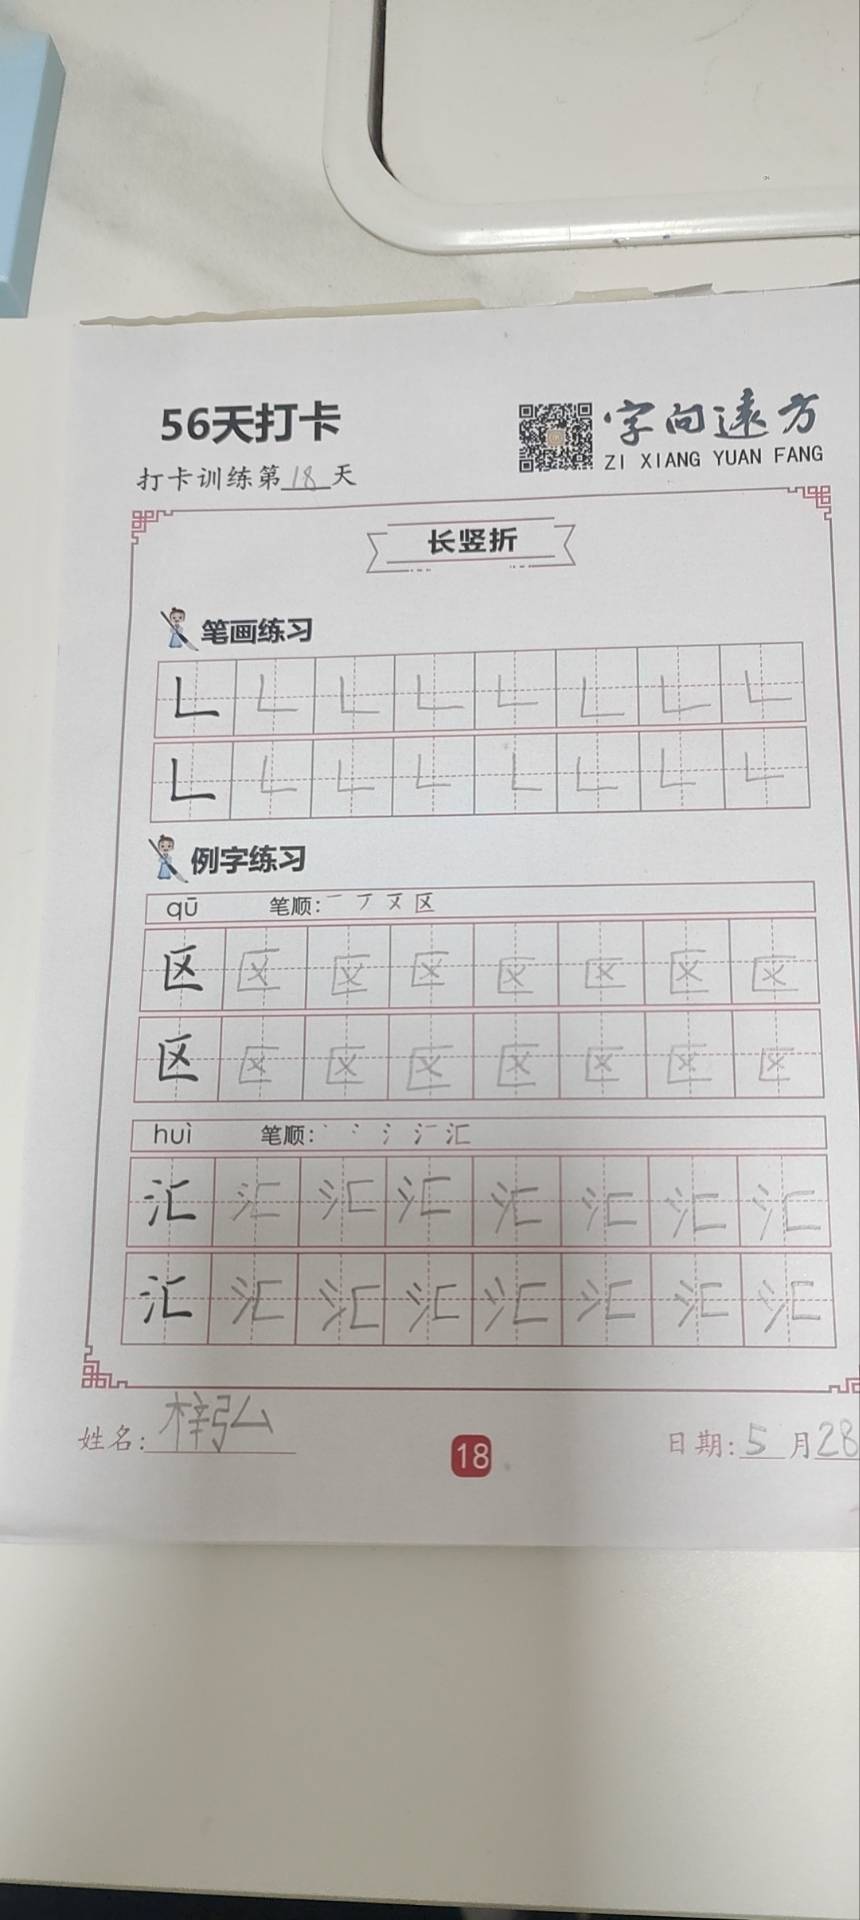 56天打卡
字向远方
ZI XIANG YUAN FANG
打卡训练第18天
长竖折
笔画练习
𠃊 𠃊 𠃊 𠃊 𠃊 𠃊 𠃊 𠃊
𠃊 𠃊 𠃊 𠃊 𠃊 𠃊 𠃊 𠃊
例字练习
qū 笔顺: 一 丆 又 区
区 区 区 区 区 区 区 区
区 区 区 区 区 区 区 区
huì 笔顺: 丶 冫 氵 汇
汇 汇 汇 汇 汇 汇 汇 汇
汇 汇 汇 汇 汇 汇 汇 汇
姓名:梓弘
18
日期:5月28